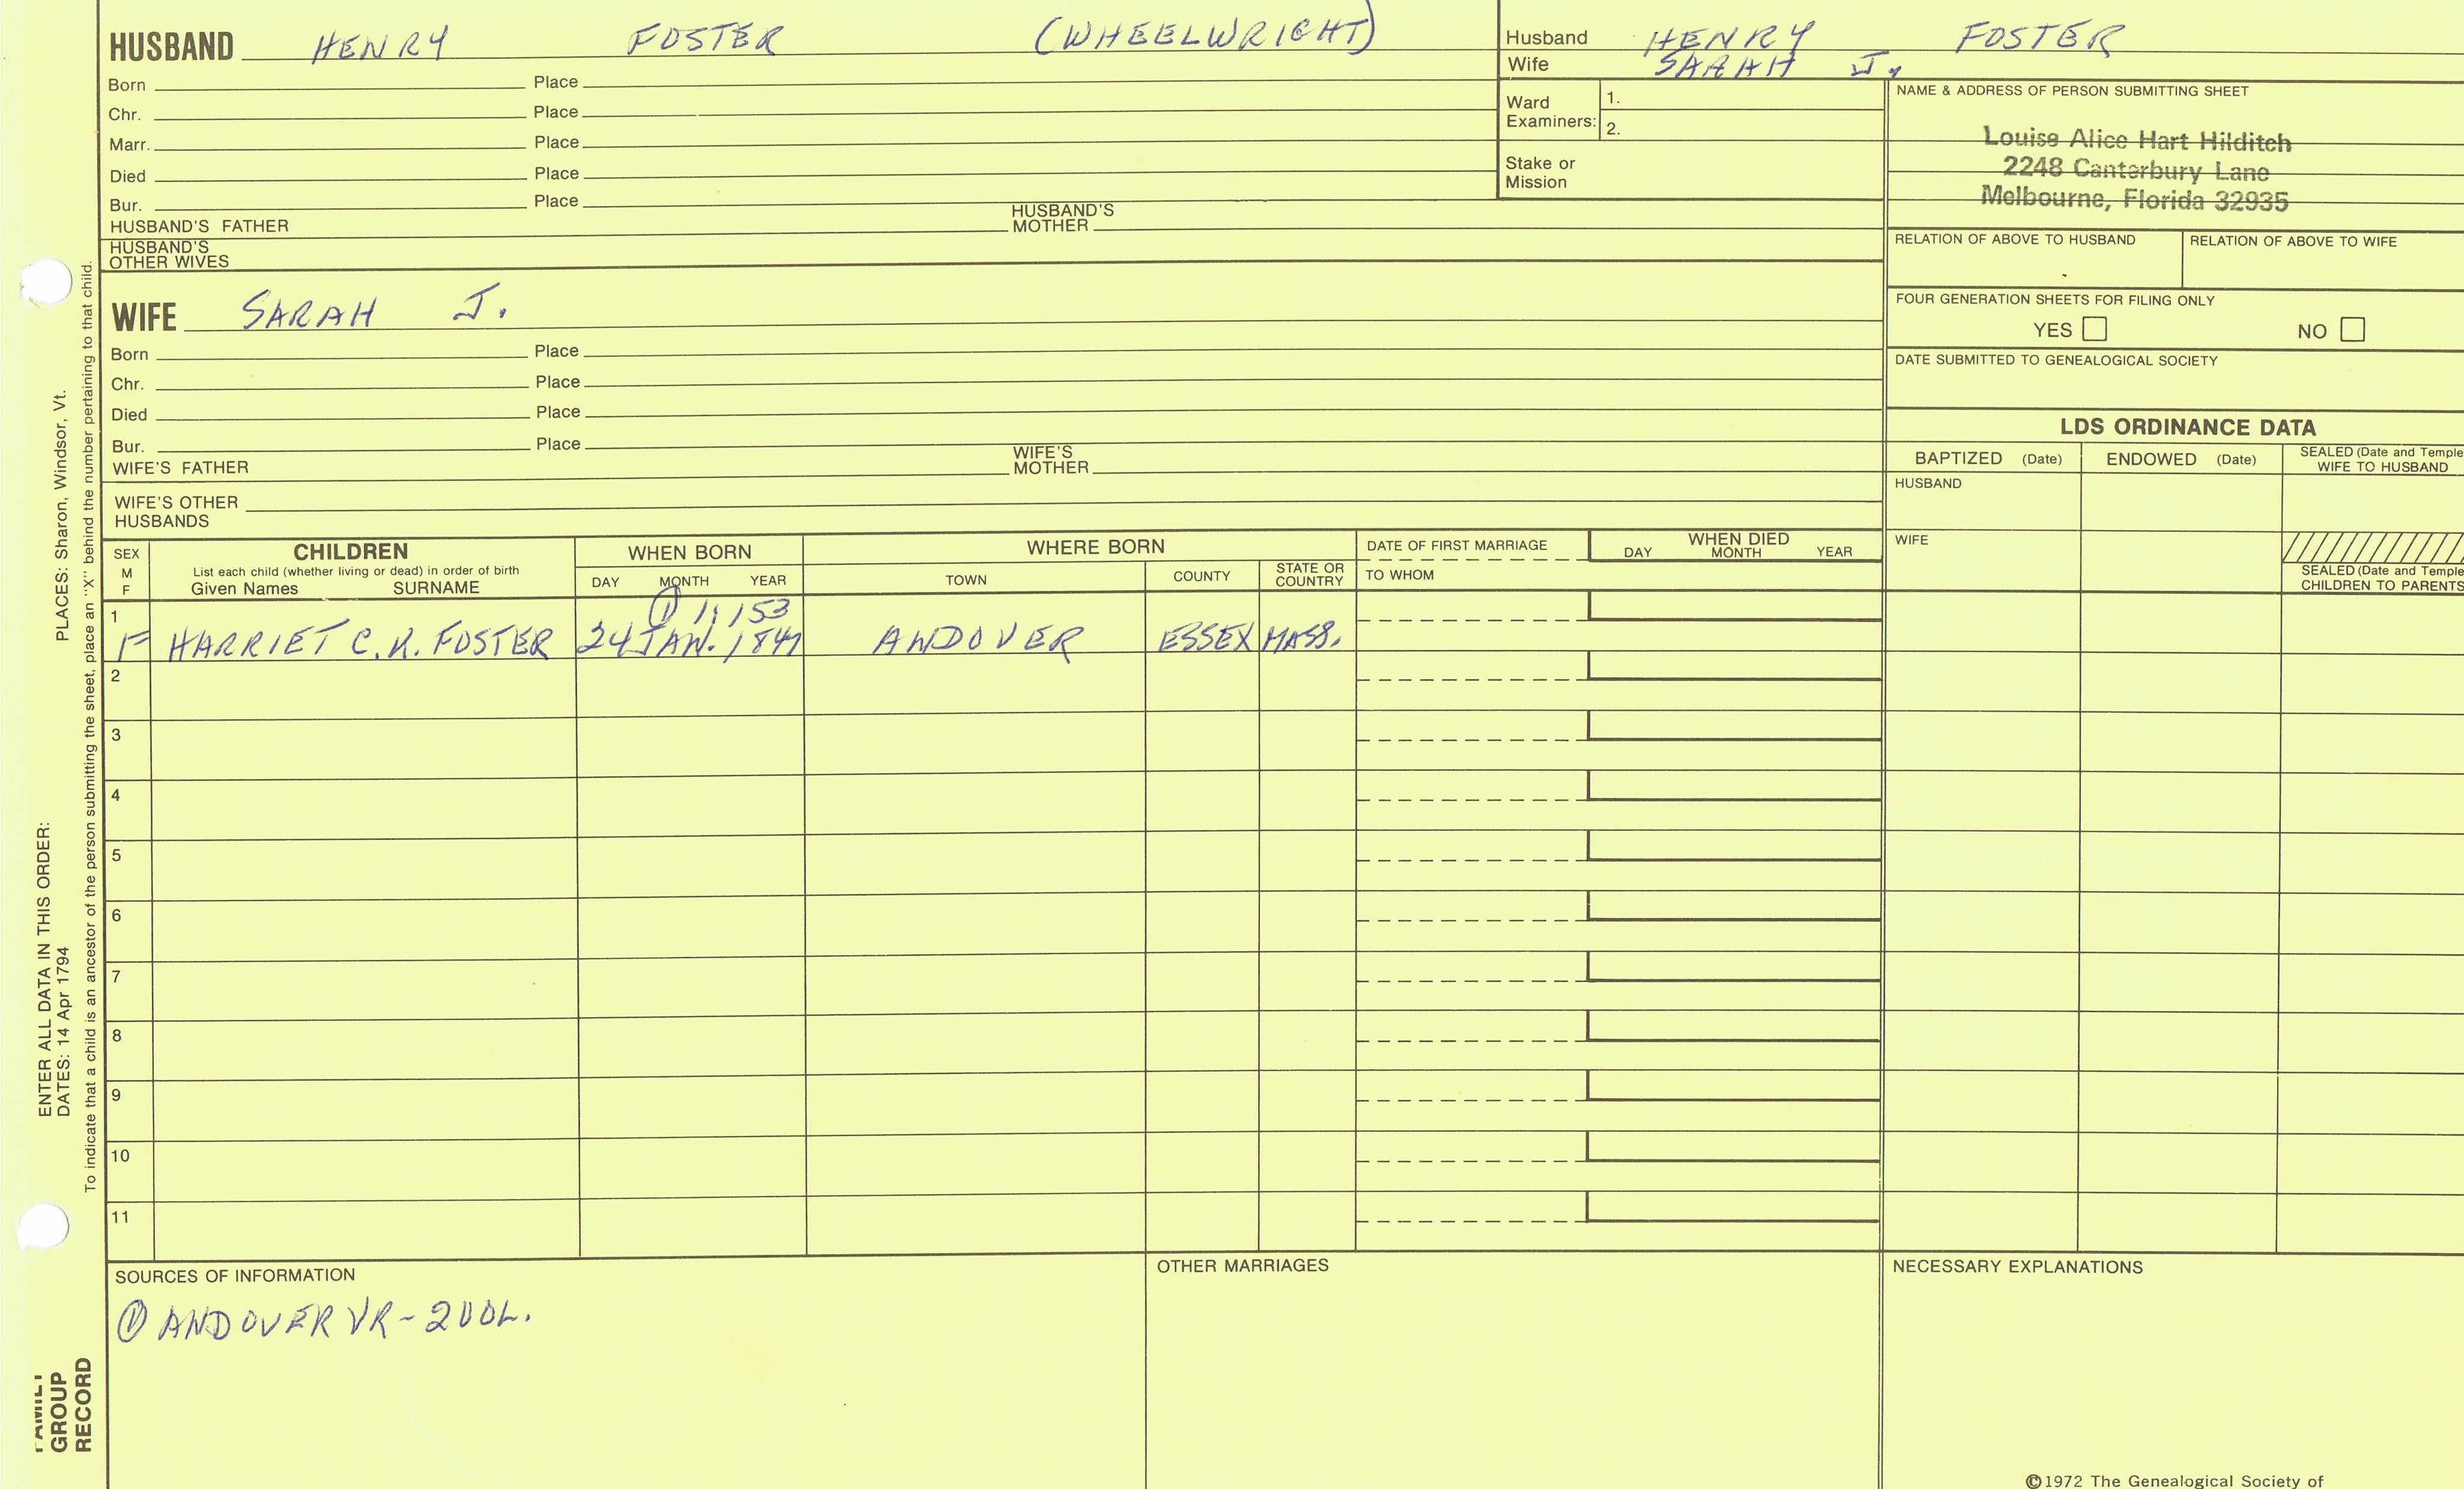 HUSBAND HENRY FOSTER (WHEELWRIGHT)
Born Place
Chr. Place
Marr. Place
Died Place
Bur. Place
HUSBAND'S FATHER HUSBAND'S MOTHER
HUSBAND'S OTHER WIVES
WIFE SARAH J.
Born Place
Chr. Place
Died Place
Bur. Place
WIFE'S FATHER WIFE'S MOTHER
WIFE'S OTHER HUSBANDS
Husband HENRY FOSTER
Wife SARAH J.
Ward Examiners: 1.
2.
Stake or Mission
NAME & ADDRESS OF PERSON SUBMITTING SHEET
Louise Alice Hart Hilditch
2248 Canterbury Lane
Melbourne, Florida 32935
RELATION OF ABOVE TO HUSBAND RELATION OF ABOVE TO WIFE
FOUR GENERATION SHEETS FOR FILING ONLY
YES NO
DATE SUBMITTED TO GENEALOGICAL SOCIETY
LDS ORDINANCE DATA
BAPTIZED (Date) ENDOWED (Date) SEALED (Date and Temple
WIFE TO HUSBAND
HUSBAND
WIFE
SEALED (Date and Temple
CHILDREN TO PARENTS
SEX M F
CHILDREN
List each child (whether living or dead) in order of birth
Given Names SURNAME
WHEN BORN
DAY MONTH YEAR
WHERE BORN
TOWN COUNTY STATE OR COUNTRY
DATE OF FIRST MARRIAGE
TO WHOM
WHEN DIED
DAY MONTH YEAR
1 ① 1:153
F HARRIET C. FOSTER 24 JAN. ANDOVER ESSEX MASS.
2
3
4
5
6
7
8
9
10
11
SOURCES OF INFORMATION
① ANDOVER VR-
OTHER MARRIAGES
NECESSARY EXPLANATIONS
©1972 The Genealogical Society of
PLACES: Sharon, Windsor, Vt.
ENTER ALL DATA IN THIS ORDER:
DATES: 14 Apr 1794
To indicate that a child is an ancestor of the person submitting the sheet, place an "X" behind the number pertaining to that child.
FAMILY
GROUP
RECORD